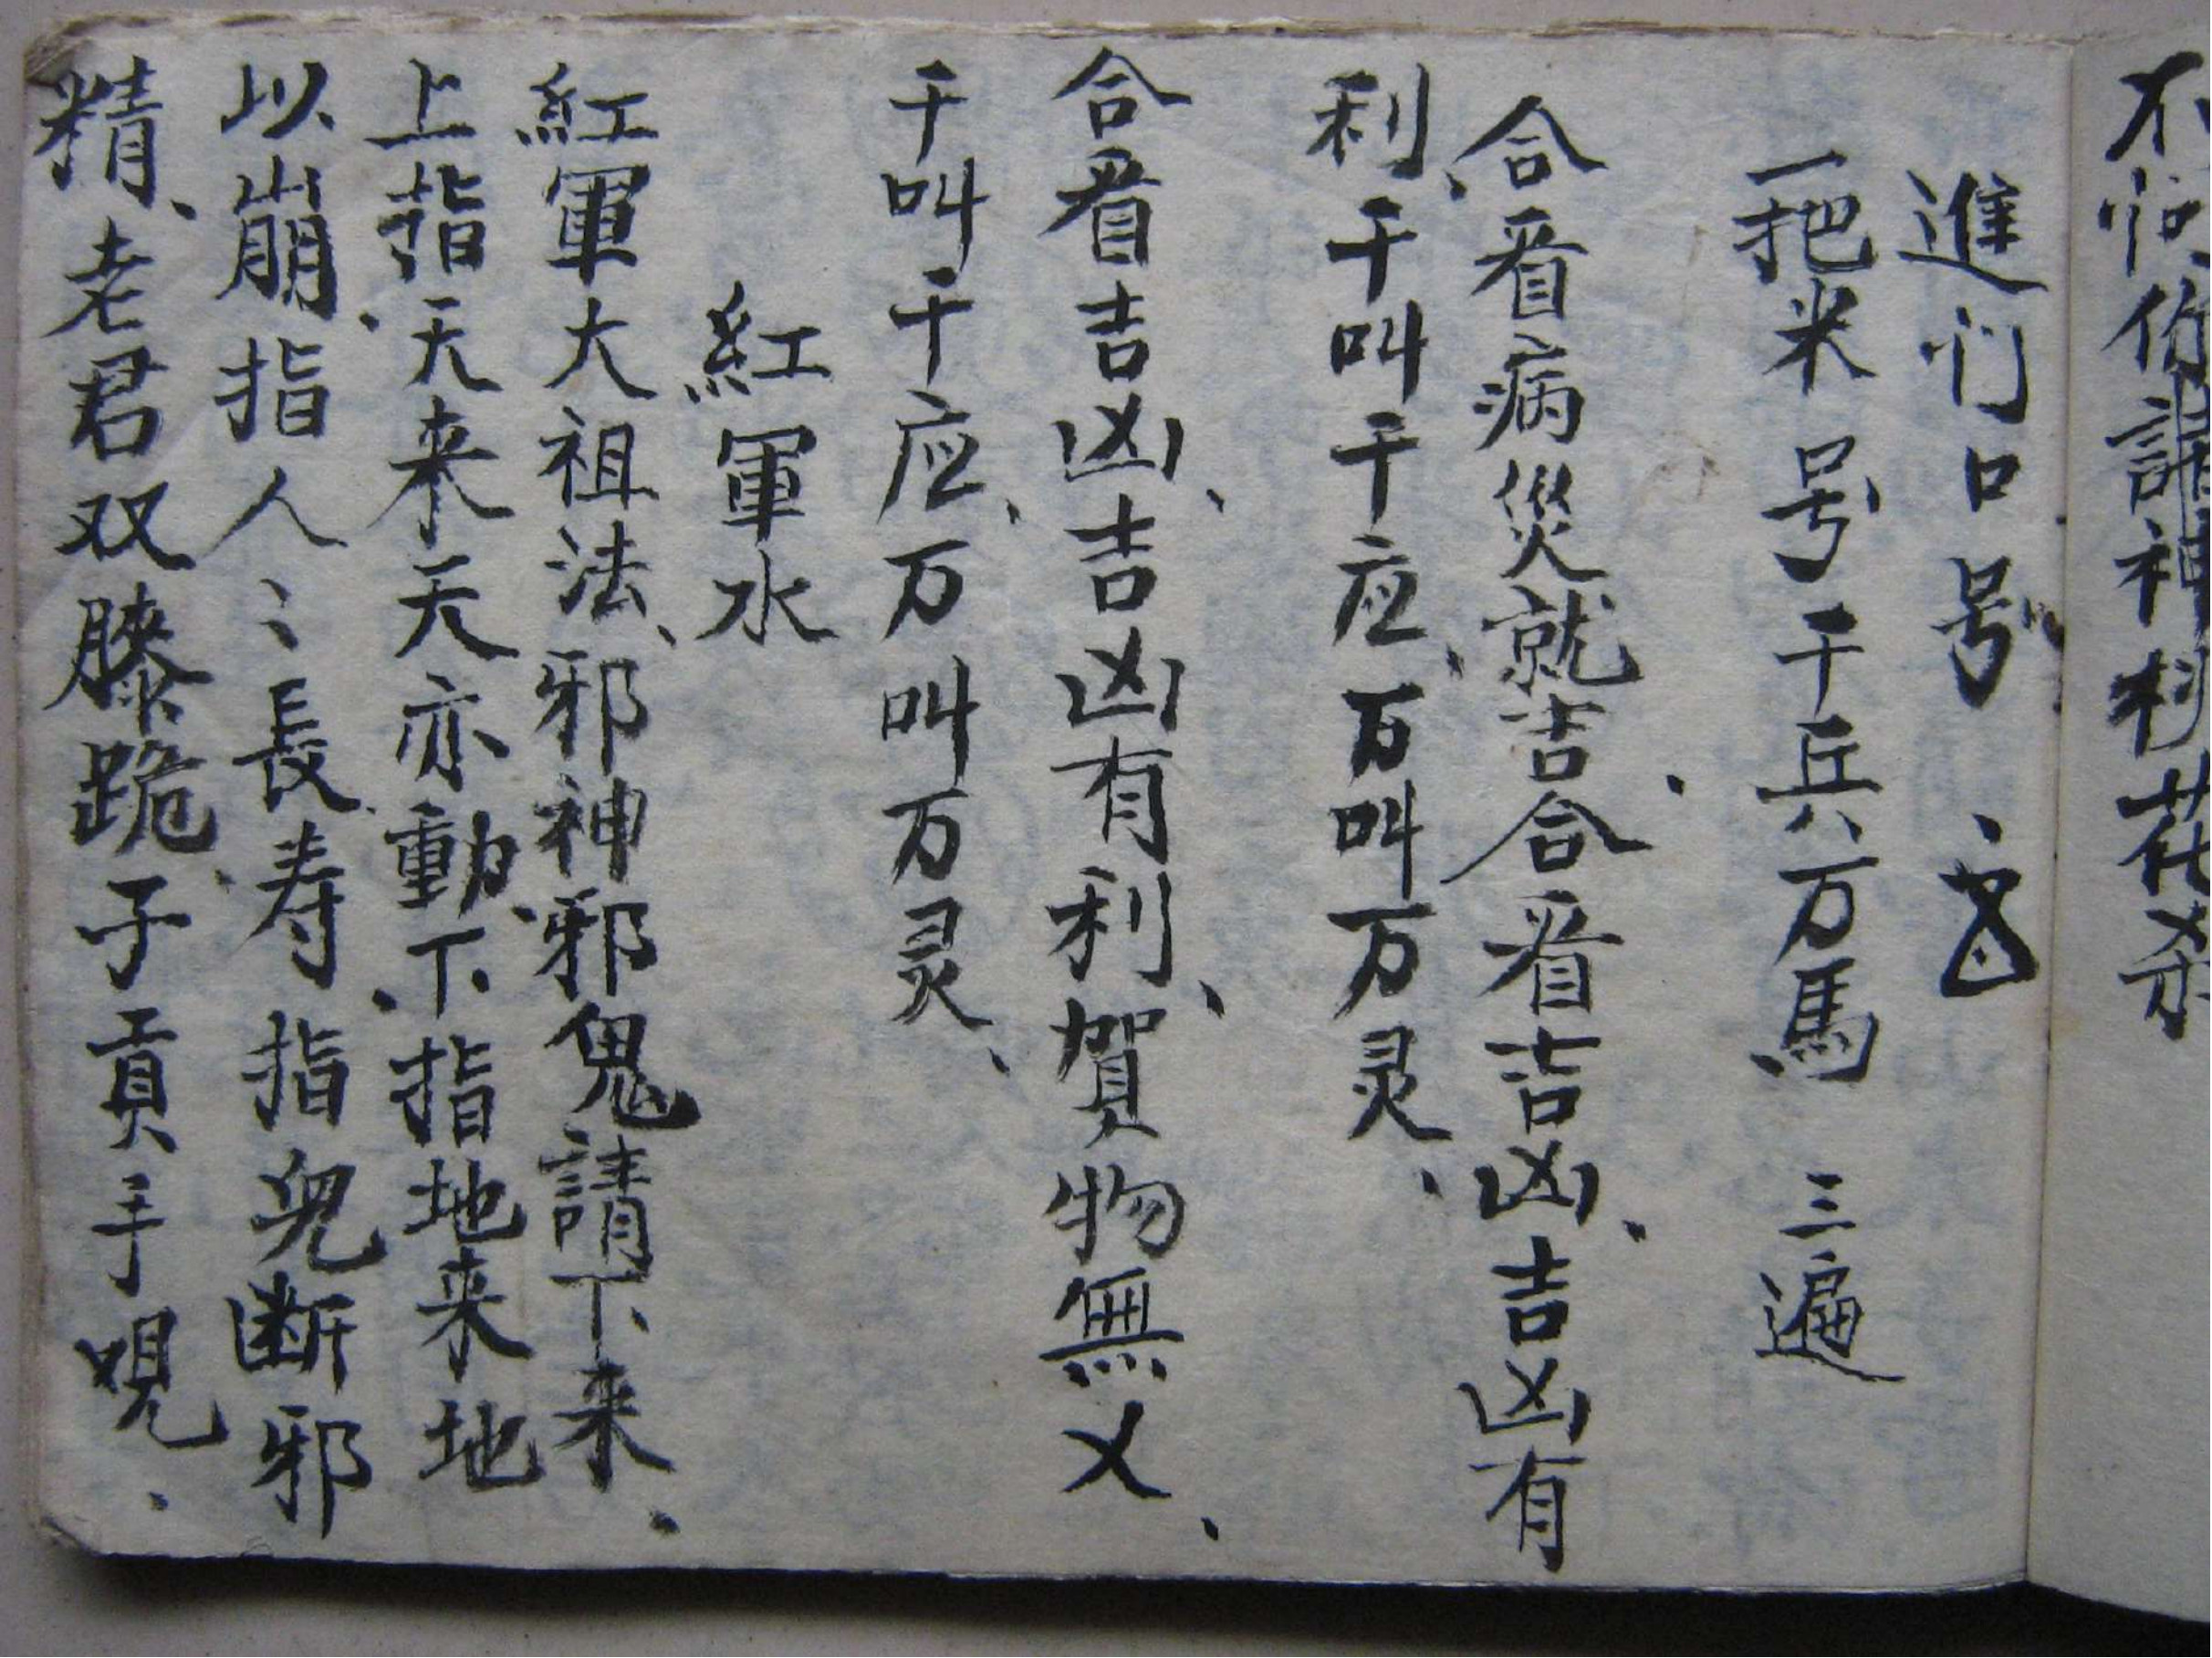 不怕你請神
進门口号
一把米号千兵万馬 三遍
合看病災就吉合看吉凶、吉凶有
利、千叫千应、百叫万灵、
合看吉凶、吉凶有利、賀物無乂、
千叫千应、万叫万灵、
紅軍水
紅軍大祖法、邪神邪鬼請下来、
上指天来天亦動、下指地来地
以崩指人〻長寿指鬼断邪
精、老君双膝跪、子貢手